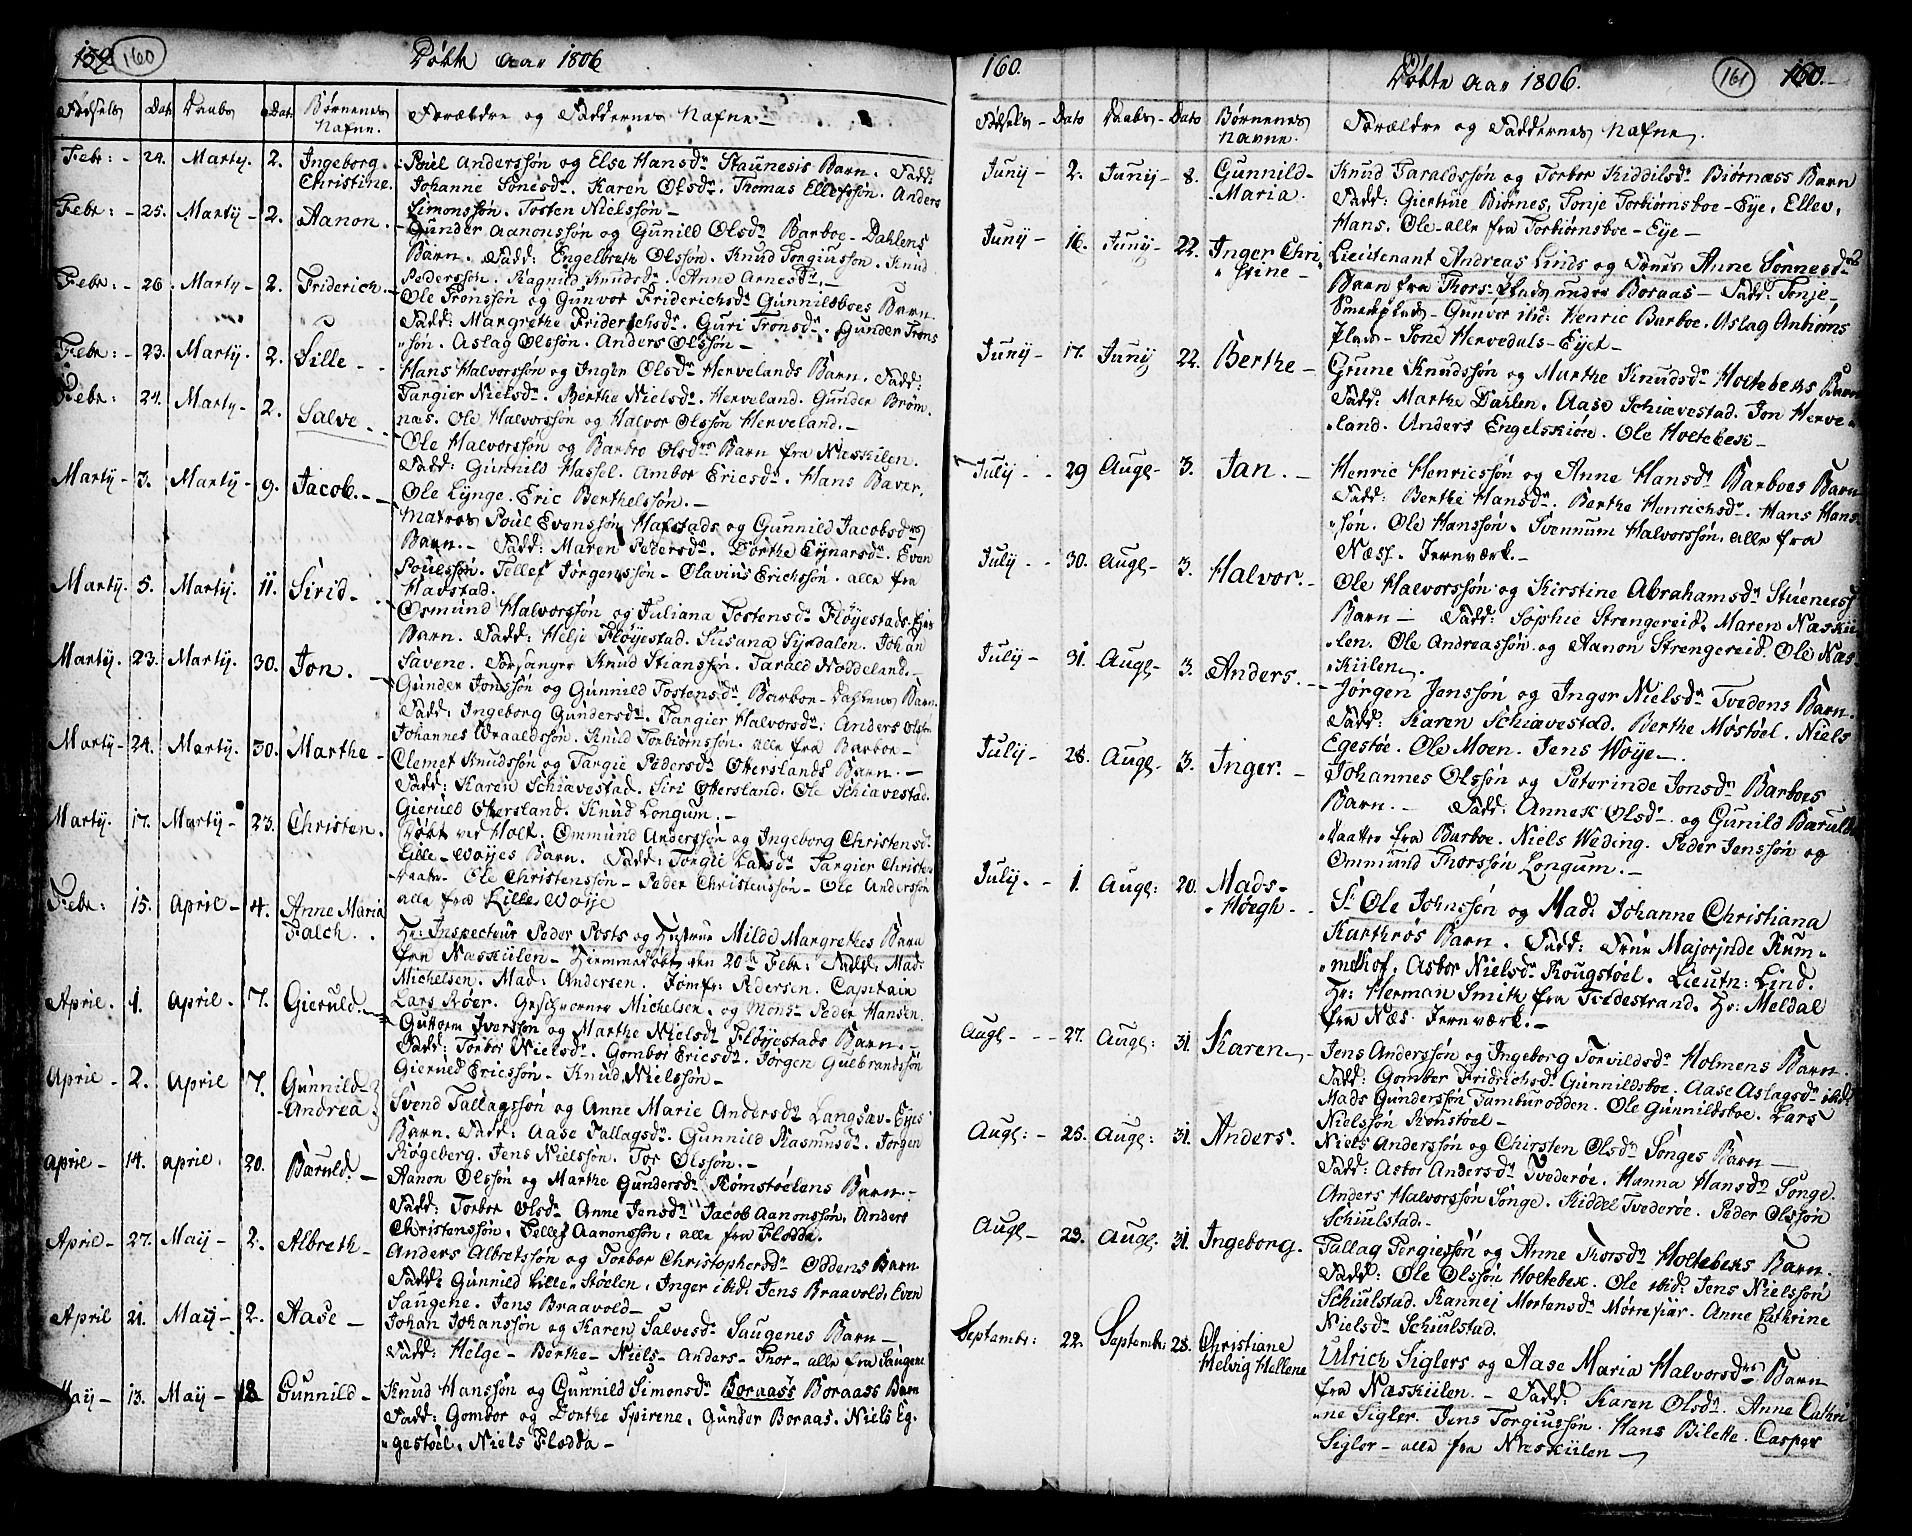 159 160 Døbte Aar 1806
Fødsels Dat. Daabs Dat. Børnenes Nafne. Forældre og Faddernes Nafne.
Febr: 24. Marty. 2. Ingeborg Christine. Poul Anderssøn og Else Hansdr Staunesis Barn. Fadd:
Johanne Sonesdr. Karen Olsdr. Thomas Ellefssøn. Anders
Simonssøn. Tosten Nielssøn
Febr: 25. Marty 2. Aanon. Gunder Aanonssøn og Gunild Olsdr Barboe Dahlens
Barn. Fadd: Engelbreth Olssøn. Knud Torgiussøn. Knud
Pederssøn. Ragnild Knudsdr. Anne Arnesdr.
Febr: 26. Marty 2. Friderich. Ole Tronssøn og Gunvor Friderichsdr Gunnildsboes Barn.
Fadd: Margrethe Friderichsdr. Guri Tronsdr. Gunder Trons
søn. Aslag Olssøn. Anders Olssøn
Febr: 23. Marty. 2. Sille Hans Halvorssøn og Inger Olsdr Hervelands Barn. Fadd:
Targier Nielsdr. Berthe Nielsdr. Herveland. Gunder Brøm
næs. Ole Halvorssøn og Halvor Olssøn Herveland.
Febr: 24. Marty 2. Salve Ole Halvorssøn og Barbro Olsdrs Barn fra Naskilen.
Fadd: Gunnild Hassel. Ambor Ericsdr. Hans Baver.
Ole Lynge. Eric Berthelssøn.
Marty 3. Marty 9. Jacob. Matros Poul Evenssøn Hafstads og Gunnild Jacobsdrs
Barn. Fadd: Maren Pedersdr. Dorthe Eynarsdr. Even
Poulssøn. Tellef Jørgenssøn Olavius Erichssøn. alle fra
Havstad.
Marty. 5. Marty. 11. Sirid Osmund Halvorssøn og Juliana Tostensdr Fløyestads
Barn. Fadd: Helje Fløyestad. Susana Syrdalen. Johan
Savene. Forsanger Knud Stianssøn. Tarald Noddeland.
Marty. 23. Marty. 30. Jon. Gunder Jonssøn og Gunnild Tostensdr Barboe Dahlens Barn.
Fadd: Ingeborg Gundersdr. Targier Halvorsdr. Anders Olssøn
Johannes Wraaldssøn. Knud Torbiørnssøn. alle fra Barboe
Marty 24. Marty. 30. Marthe Clemet Knudssøn og Targie Pedersdr Oterslands Barn.
Fadd: Karen Schiavestad. Siri Ottersland. Ole Schiavestad.
Gieruld Otersland. Knud Longum.
Marty. 17. Marty 23. Christen. Døbt ved Holt. Ommund Anderssøn og Ingeborg Christensdr
Lille Woyes Barn. Fadd: Torgie Larsdr Targier Christens
daatr Ole Christenssøn Peder Christenssøn Ole Anderssøn
alle fra Lille Woye
Febr: 15. April 4. Anne Maria Falch. Hr: Inspecteur Peder Posts og Hustrue Milde Margrethes Barn
fra Naskiilen Hiemmedøbt den 20de Febr: Fadd: Mad:
Michelsen. Mad: Andersen. Jomfr: Pedersen. Capitain
Lars Røer. Geschworner Michelsen. og Monsr Peder Hansen.
April. 1. April. 7. Gieruld. Guttorm Iverssøn og Marthe Nielsdr Fløyestads Barn.
Fadd: Torbor Nielsdr. Gombor Ericsdr. Jørgen Gulbrandssøn
Gieruld Ericssøn Knud Nielssøn
April 2. April 7. Gunnild Andrea Svend Tallagssøn og Anne Marie Andersdr Langsav Eyes
Barn. Fadd: Aase Tallagsdr. Gunnild Rasmusdr. Jørgen
Røgeberg. Jens Nielssøn. Tor Olssøn.
April 14. April. 20. Bæruld. Aanon Olssøn og Marthe Gundersdr Rømstoelens Barn.
Fadd: Torbor Olsdr Anne Jensdr Jacob Aanonssøn. Anders
Christenssøn. Tellef Aanonssøn. alle fra Flodda.
April 27. May 2. Albreth Anders Albretssøn og Torbor Christophersdr Oddens Barn
Fadd: Gunnild Lille Støelen. Inger ibid: Jens Braavold. Even
Saugene. Jens Braavold
April 21. May 2. Aase Johan Johanssøn og Karen Salvesdr Saugenes Barn
Fadd: Helge Berthe Niels Anders Thor alle fra Saugene
May 13. May 18 Gunnild Knud Hanssøn og Gunnild Simonsdr Boraass Boraass Barn
Fadd: Gombor og Dorthe Spirene. Gunder Boraas. Niels Eg
gestoel. Niels Flodda
160. Døbte Aar 1806. 161 160.
Fødsels Dato Daabs Dato Børnenes Navne. Forældre og Faddernes Nafne.
Juny 2. Juny 8. Gunnild Maria. Knud Taraldssøn og Torbor Kiddilsdr Biørnæss Barn
Fadd: Giertrue Biørnes. Tonje Torbiørnsboe Eye. Ellev,
Hans. Ole alle fra Torbiørnsboe Eye
Juny 16. Juny 22. Inger Christine Lieutenant Andreas Linds og Frues Anne Sonnesdrs
Barn fra Thors under Boraas Fadd: Tonje
Gunvor ibid: Henric Barboe. Aslag
Tone Hervedals Eyet
Juny 17. Juny 22. Berthe Grune Knudssøn og Marthe Knudsdr Holtebeks Barn
Fadd: Marthe Dahlen. Aase Schiavestad. Jon Herve
land. Anders Engelskiøn. Ole Holtebek
July 29 Augl 3. Jan. Henric Henricssøn og Anne Hansdr Barboes Barn
Fadd: Berthe Hansdr. Berthe Henrichsdr. Hans Hans
søn. Ole Hanssøn. Svennum Halvorssøn. alle fra
Næss. Jernværk.
July 30. Augl 3. Halvor. Ole Halvorssøn og Kirstine Abrahamsdr Stuenes
Barn Fadd: Sophie Strengereid. Maren Naskii
len. Ole Andreassøn og Aanon Strengereid. Ole Nas
kiilen.
July 31. Augl 3 Anders. Jørgen Jenssøn og Inger Nielsdr Tvedens Barn.
Fadd: Karen Schiavestad. Berthe Møstøel. Niels
Egestøe. Ole Moen. Jens Woye.
July 28. Augl 3. Inger. Johannes Olssøn og Peterinde Jonsdr Barboes
Barn. Fadd: Annek Olsdr og Gunild Bæruld
daatter fra Barboe. Niels Weding. Peder Jenssøn og
Ommund Thorssøn Longum.
July. 1. Augl: 20. Mads Høegh Sr Ole Johnssøn og Mad: Johanne Christiana
Kurthrøs Barn. Fadd: Frue Majorinde Rum
melhof. Astor Nielsdr Rougstøel. Lieutn: Lind.
Hr: Herman Smith fra Tvedestrand. Hr: Meldal
fra Næs Jernværk.
Augl 27. Augl: 31. Karen Jens Anderssøn og Ingeborg Torvildsdr Holmens Barn.
Fadd: Gomber Fridrichsdr Gunnildsboe. Aase Aslagsdr ibid:
Mads Gunderssøn Tamburodden. Ole Gunnildsboe. Lars
Nielssøn Ronstøel
Augl: 25. Augl: 31. Anders. Niels Anderssøn og Chirsten Olsdr Songes Barn
Fadd: Astor Andersdr Tvederøe. Hanna Hansdr Songe.
Anders Halvorssøn Songe. Kiddel Tvederøe. Peder Olssøn
Schiulstad.
Augl 29. Augl: 31. Ingeborg. Tallag Tergiessøn og Anne Thorsdr Holtebeks Barn
Fadd: Ole Olssøn Holtebek. Ole ibid: Jens Nielssøn
Schiulstad. Rannej Mortensdr Mørrefiær. Anne Cathrine
Nielsdr Schiulstad.
Septembr: 22. Septembr: 28. Christiane Helvig Hellene Ulrich Siglers og Aase Maria Halvorsdrs Barn
fra Naskiilen. Fadd: Karen Olsdr. Anne Cathri
ne Sigler. Jens Torgiussøn. Hans Bilette. Casper
Sigler alle fra Naskiilen